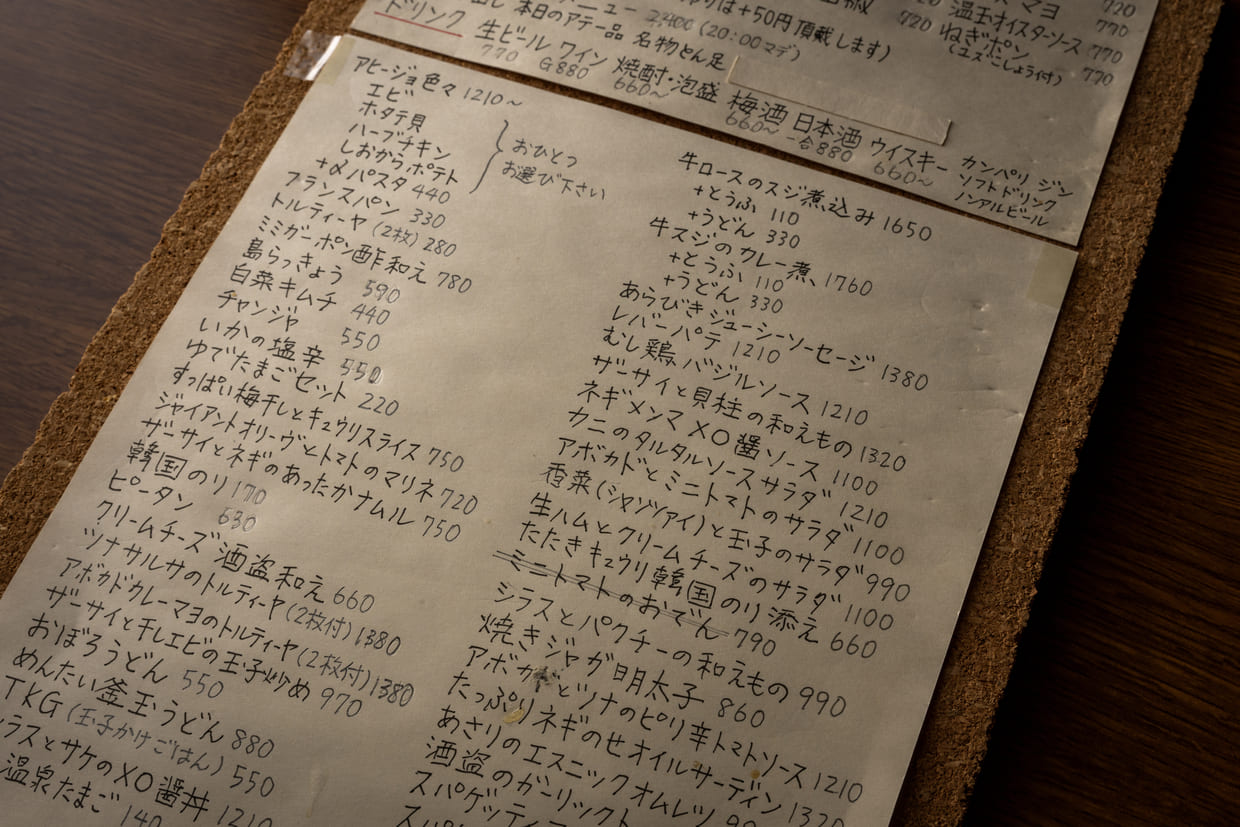 マヨ 720
720 温玉オイスターソース 770
720 ねぎポン 770
(ユズこしょう付)
は+50円頂戴します)
ニュー 2,400(20:00マデ)
出し 本日のアテ一品 名物とん足
ドリンク
生ビール 770
ワイン G880
焼酎・泡盛 660〜
梅酒 660〜
日本酒 一合880
ウイスキー 660〜
カンパリ ジン
ソフトドリンク
ノンアルビール
アヒージョ色々 1210〜
エビ
ホタテ貝
ハーブチキン
しおからポテト
おひとつ
お選び下さい
+αパスタ 440
フランスパン 330
トルティーヤ(2枚) 280
ミミガーポン酢和え 780
島らっきょう 590
白菜キムチ 440
チャンジャ 550
いかの塩辛 550
ゆでたまごセット 220
すっぱい梅干しとキュウリスライス 750
ジャイアントオリーヴとトマトのマリネ 720
ザーサイとネギのあったかナムル 750
韓国のり 170
ピータン 630
クリームチーズ酒盗和え 660
ツナサルサのトルティーヤ(2枚付) 1380
アボカドクレーマヨのトルティーヤ(2枚付) 1380
ザーサイと干しエビの玉子炒め 970
おぼろうどん 550
めんたい釜玉うどん 880
TKG(玉子かけごはん) 550
ラスとサケのXO醤丼 1210
温泉たまご 140
牛ロースのスジ煮込み 1650
+とうふ 110
+うどん 330
牛スジのカレー煮 1760
+とうふ 110
+うどん 330
あらびきジューシーソーセージ 1380
レバーパテ 1210
むし鶏バジルソース 1210
ザーサイと貝柱の和えもの 1320
ネギメンマXO醤ソース 1100
カニのタルタルソースサラダ 1210
アボカドとミニトマトのサラダ 1100
香菜(シャンツァイ)と玉子のサラダ 990
生ハムとクリームチーズのサラダ 1100
たたきキュウリ韓国のり添え 660
ミニトマトのおでん 790
シラスとパクチーの和えもの 990
焼きジャガ明太子 860
アボカドとツナのピリ辛トマトソース 1210
たっぷりネギのせオイルサーディン 1320
あさりのエスニックオムレツ 99
酒盗のガーリックト
スパゲッティー